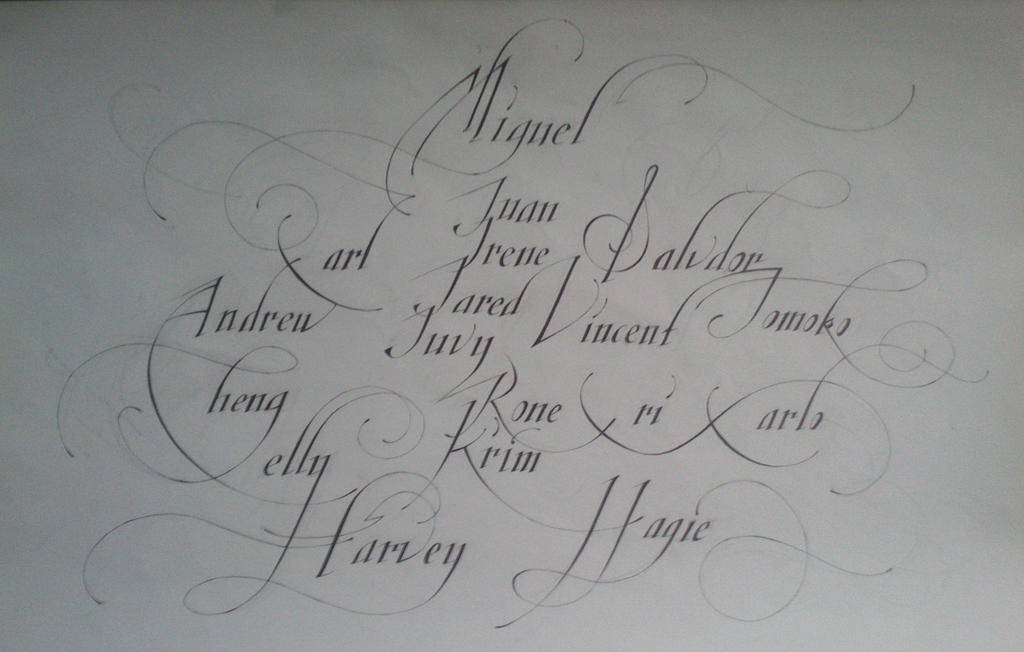 Miguel
Juan
Karl Irene Salvdor
Jared
Andrew Juvy Vincent Tomoko
Cheng Rone Kri Karlo
Kelly Krim
Harvey Hagie